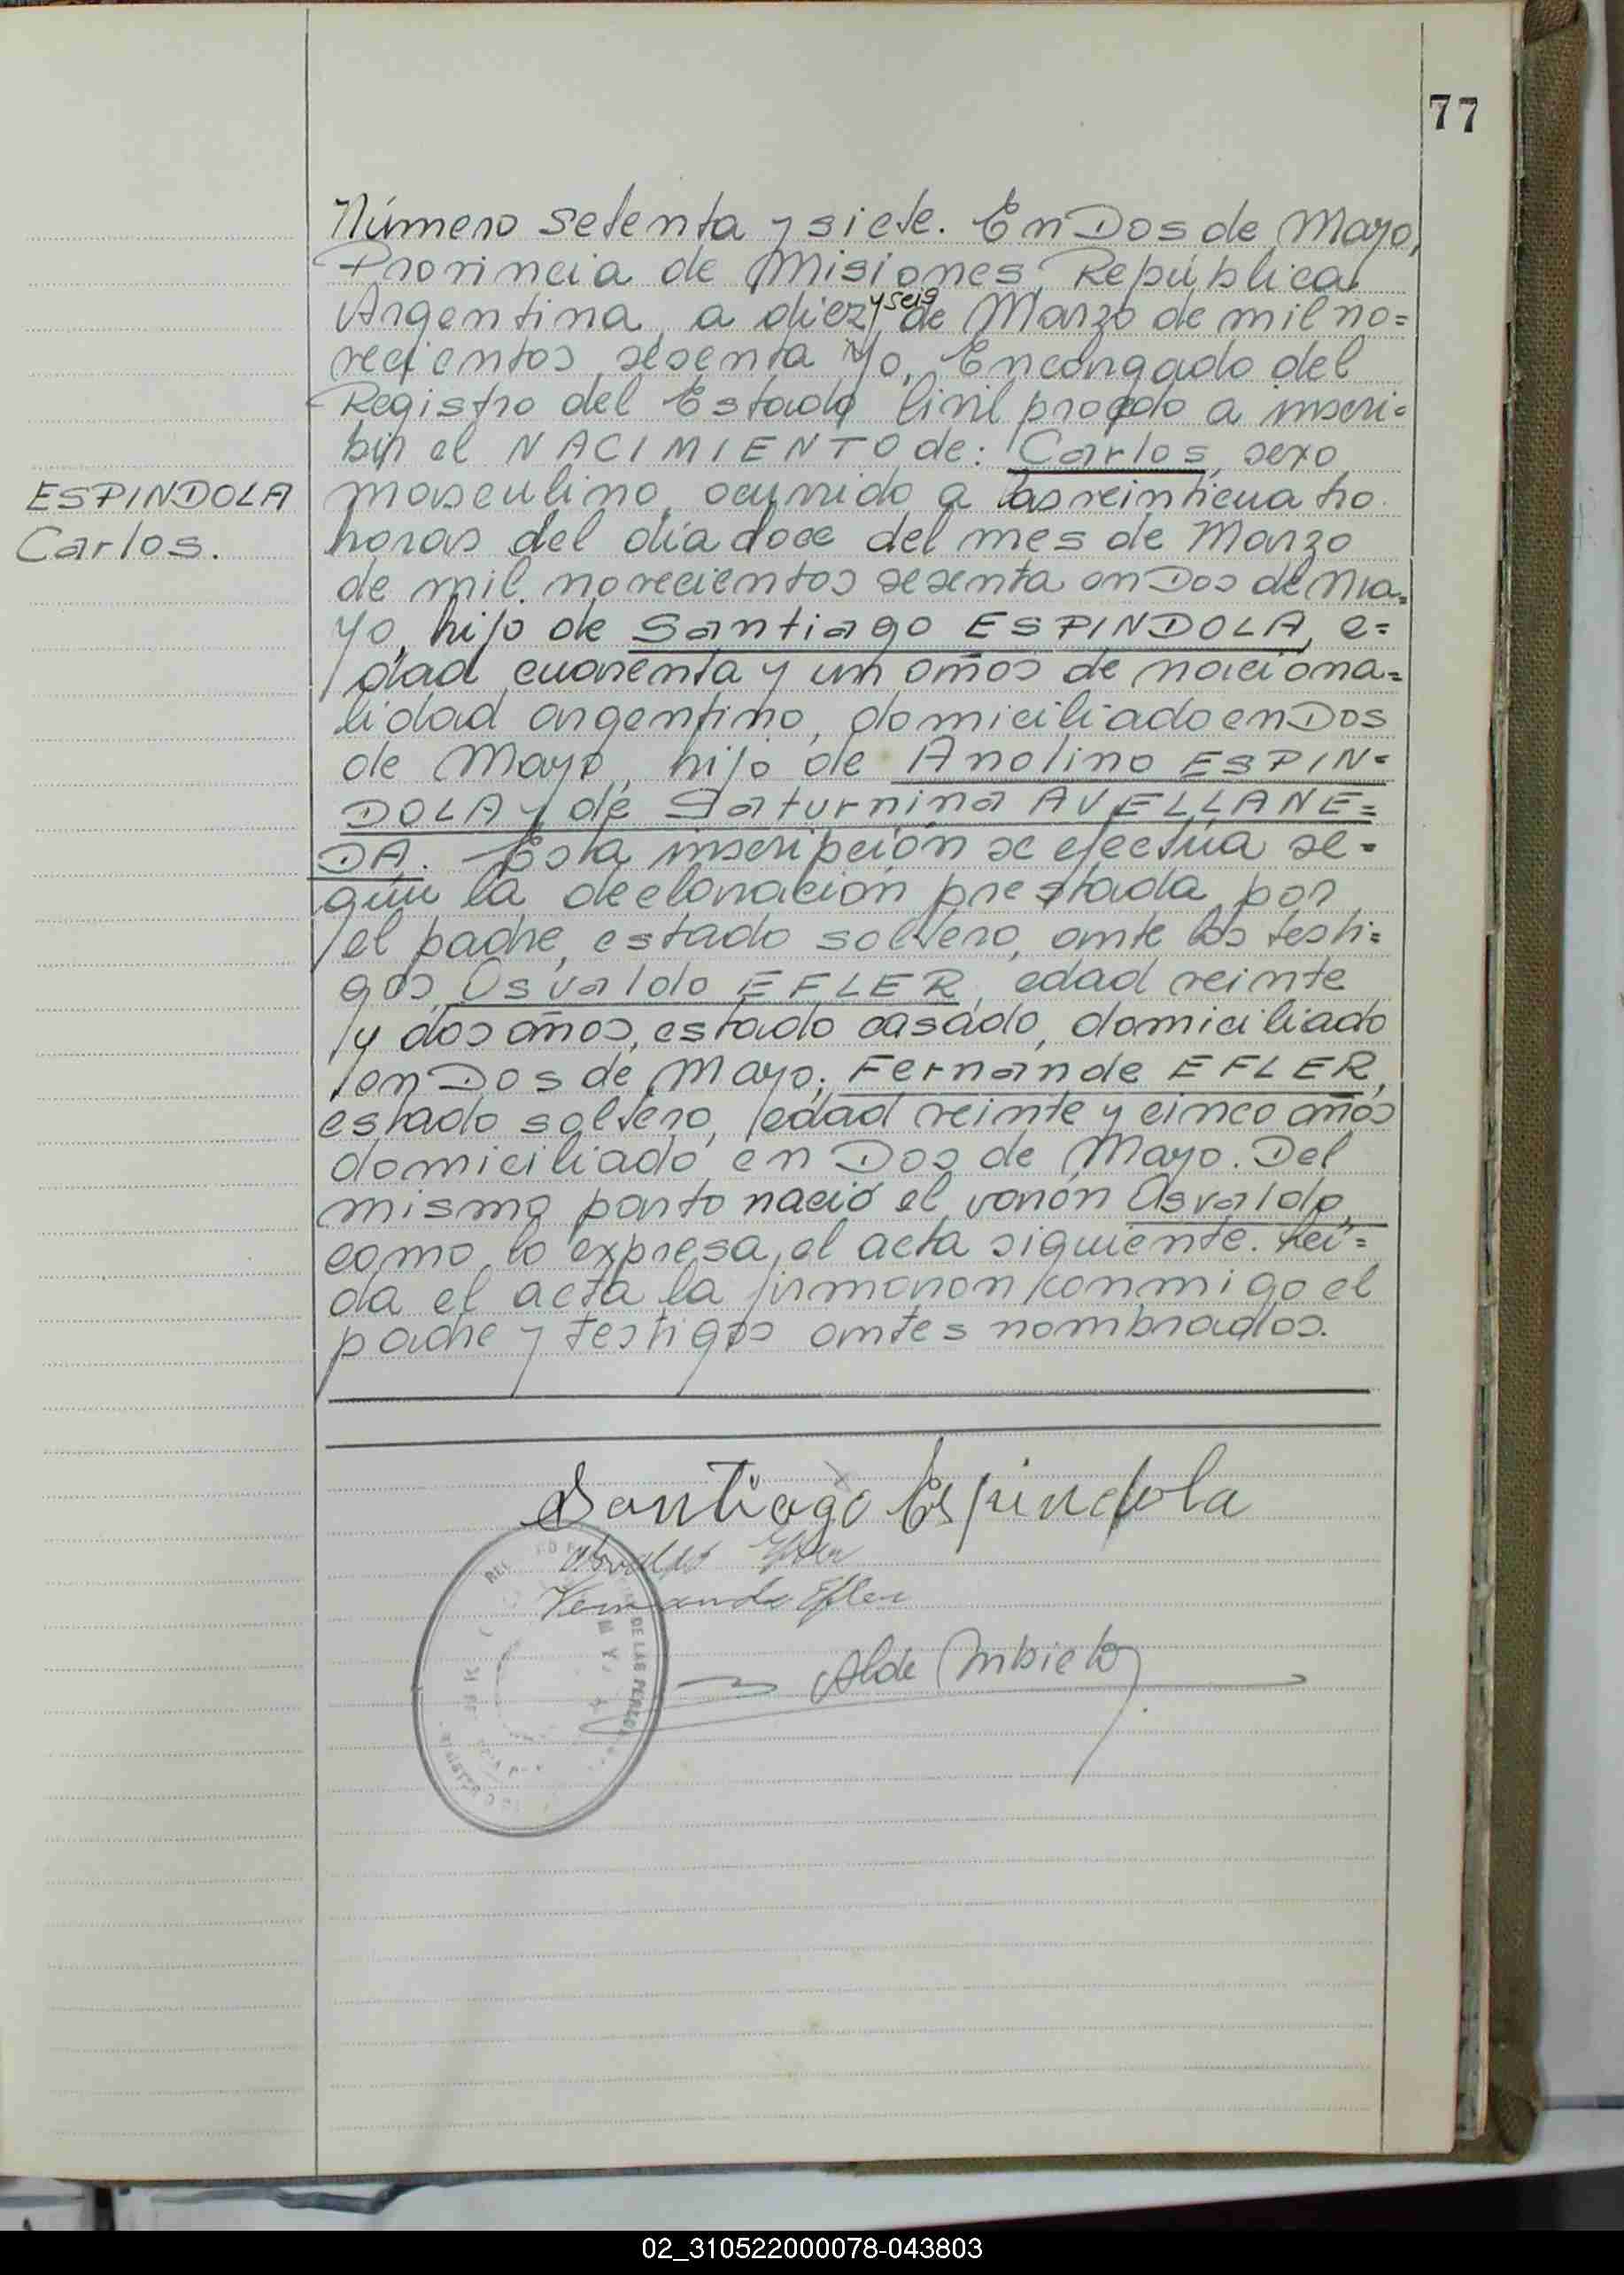 77
Número setenta y siete. En Dos de Mayo,
Provincia de Misiones, República
Argentina, a diez y seis de Marzo de mil no=
vecientos sesenta Yo, Encargado del
Registro del Estado Civil procedo a inscri=
bir el NACIMIENTO de: Carlos, sexo
ESPINDOLA
Carlos.
masculino, ocurrido a las veinticuatro
horas del día doce del mes de Marzo
de mil novecientos sesenta en Dos de Ma=
yo, hijo de Santiago ESPINDOLA, e=
dad cuarenta y un años de naciona=
lidad argentino, domiciliado en Dos
de Mayo, hijo de Anolino ESPIN=
DOLA y de Saturnina AVELLANE=
DA. Esta inscripción se efectúa se=
gún la declaración prestada por
el padre, estado soltero, ante los testi=
gos, Osvaldo EFLER, edad veinte
y dos años, estado casado, domiciliado
en Dos de Mayo; Fernande EFLER,
estado soltero, edad veinte y cinco años
domiciliado en Dos de Mayo. Del
mismo parto nació el varón Osvaldo,
como lo expresa el acta siguiente. Leí=
da el acta la firmaron conmigo el
padre y testigos antes nombrados.
Santiago Espindola
Osvaldo Efler
Fernande Efler
DE LAS PERSO
02_310522000078-043803